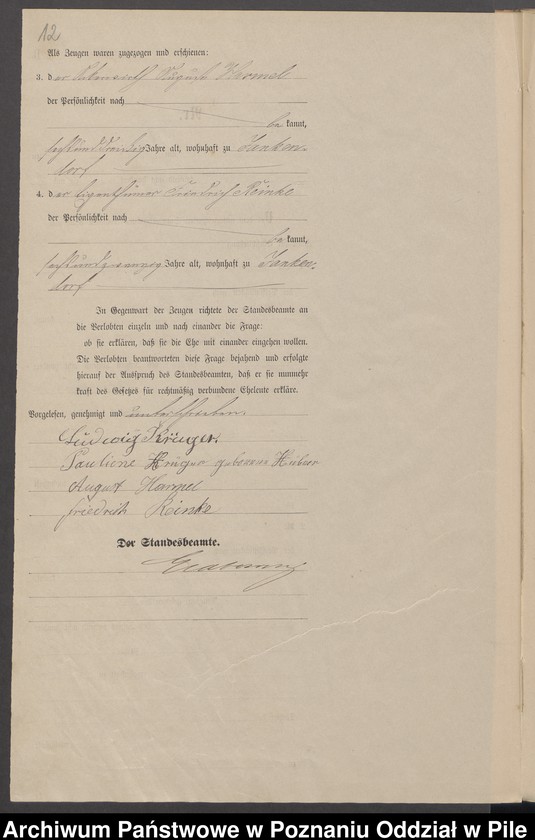 12
Als Zeugen waren zugezogen und erschienen:
3. der August Harmel
der Persönlichkeit nach
be kannt,
sechsunddreißig Jahre alt, wohnhaft zu
dorf
4. der Eigenthümer Friedrich Reinke
der Persönlichkeit nach
be kannt,
sechsundzwanzig Jahre alt, wohnhaft zu
dorf
In Gegenwart der Zeugen richtete der Standesbeamte an
die Verlobten einzeln und nach einander die Frage:
ob sie erklären, daß sie die Ehe mit einander eingehen wollen.
Die Verlobten beantworteten diese Frage bejahend und erfolgte
hierauf der Ausspruch des Standesbeamten, daß er sie nunmehr
kraft des Gesetzes für rechtmäßig verbundene Eheleute erkläre.
Vorgelesen, genehmigt und unterschrieben.
Ludwig Krüger.
Pauliene Krüger geborene
August Harmel
Friedrich Reinke
Der Standesbeamte.
Archiwum Państwowe w Poznaniu Oddział w Pile